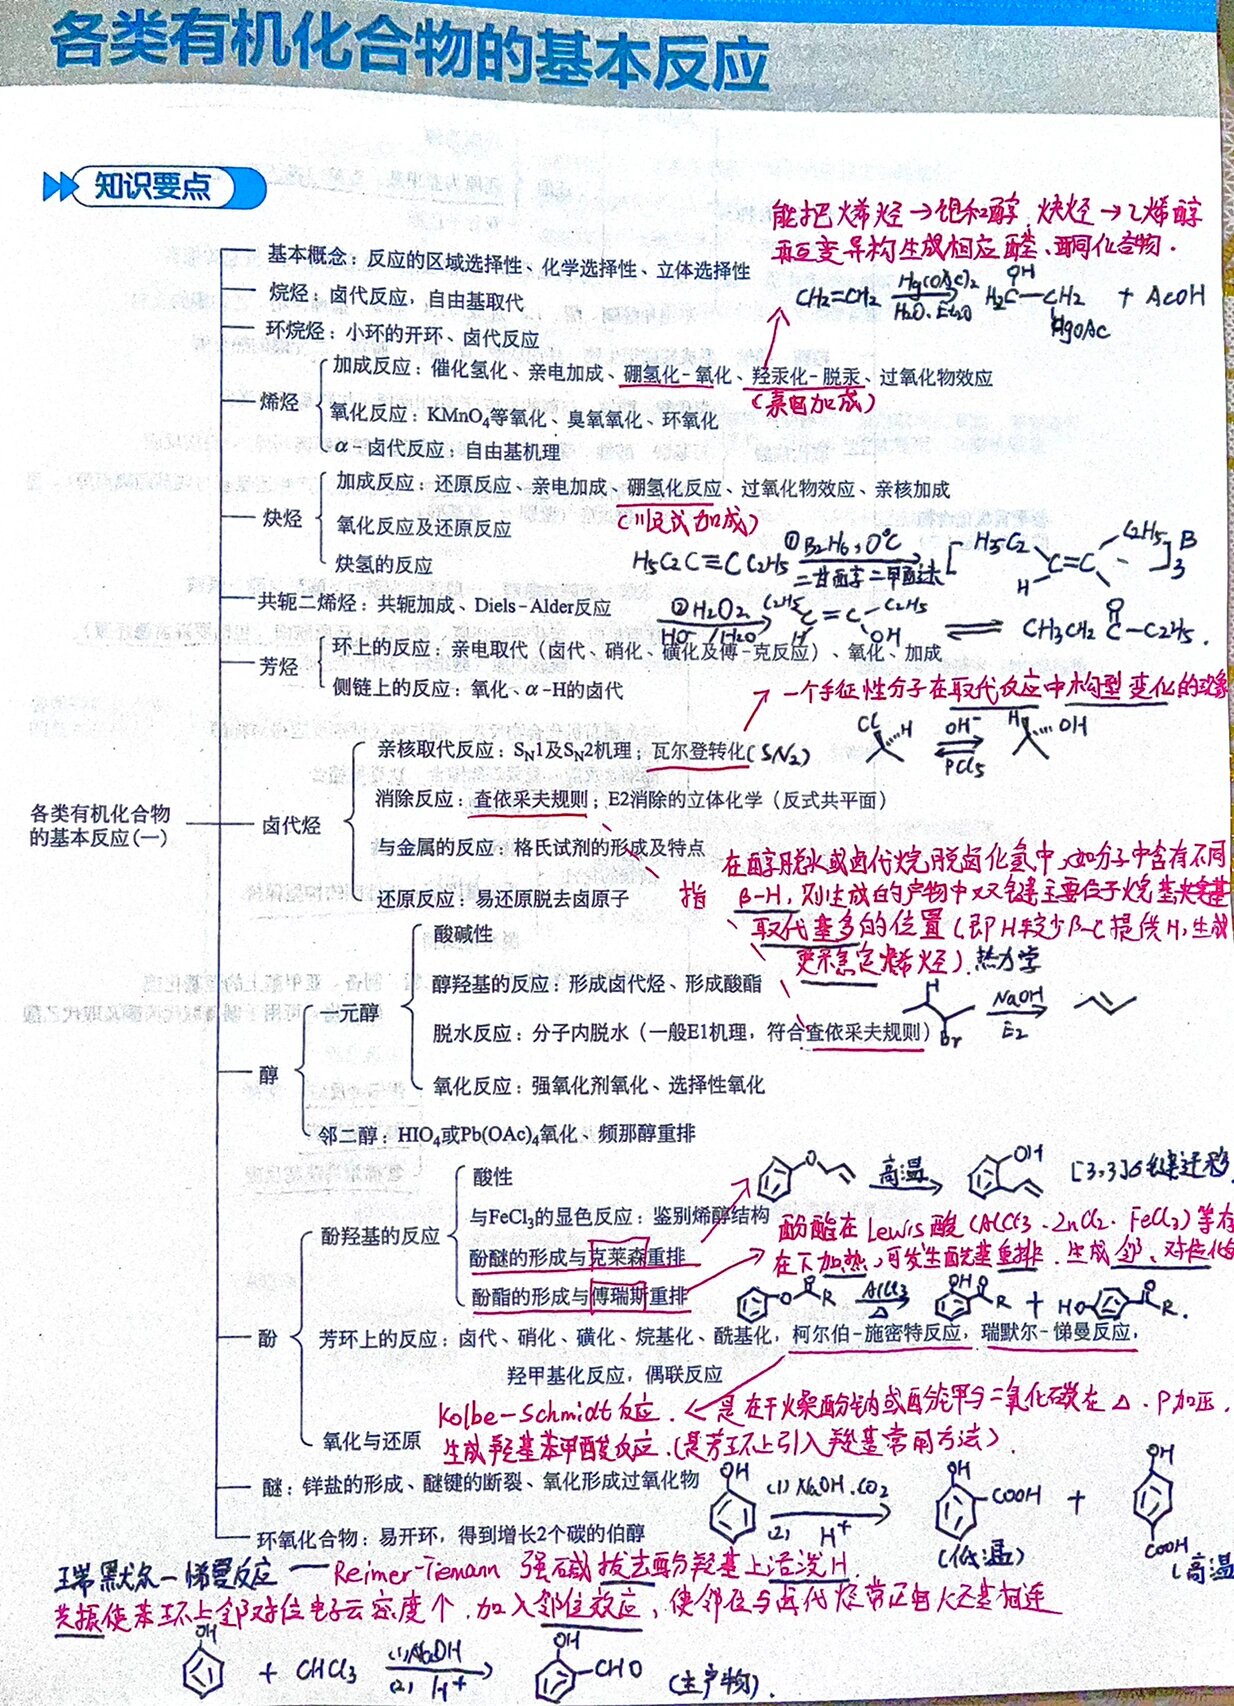 各类有机化合物的基本反应
知识要点
能把烯烃→饱和醇,炔烃→乙烯醇
再互变异构生成相应醛、酮化合物.
CH2=CH2 Hg(OAc)2 H2O.Et2O H2C—CH2 OH HgOAc + AcOH
基本概念：反应的区域选择性、化学选择性、立体选择性
烷烃：卤代反应，自由基取代
环烷烃：小环的开环、卤代反应
烯烃
加成反应：催化氢化、亲电加成、硼氢化-氧化、羟汞化-脱汞、过氧化物效应
(亲电加成)
氧化反应：KMnO4等氧化、臭氧氧化、环氧化
α-卤代反应：自由基机理
炔烃
加成反应：还原反应、亲电加成、硼氢化反应、过氧化物效应、亲核加成
(顺式加成)
氧化反应及还原反应
炔氢的反应
H5C2C≡CC2H5 ①B2H6,0℃ 二甘醇二甲醚 [H5C2 H C=C C2H5]3 B
共轭二烯烃：共轭加成、Diels-Alder反应
②H2O2 HO⁻/H2O C2H5 H C=C C2H5 OH ⇌ CH3CH2 C—C2H5. O
芳烃
环上的反应：亲电取代（卤代、硝化、磺化及傅-克反应）、氧化、加成
侧链上的反应：氧化、α-H的卤代
→一个手征性分子在取代反应中构型变化的现象
Cl H OH⁻ PCl5 H OH
各类有机化合物
的基本反应(一)
卤代烃
亲核取代反应：SN1及SN2机理；瓦尔登转化(SN2)
消除反应：查依采夫规则；E2消除的立体化学（反式共平面）
与金属的反应：格氏试剂的形成及特点
还原反应：易还原脱去卤原子
指 在醇脱水或卤代烷脱卤化氢中,如分子中含有不同
β-H,则生成的产物中双键主要位于烷基
取代基多的位置(即H较少β-C提供H,生成
更稳定烯烃).热力学
H Br NaOH E2
醇
一元醇
酸碱性
醇羟基的反应：形成卤代烃、形成酸酯
脱水反应：分子内脱水（一般E1机理，符合查依采夫规则）
氧化反应：强氧化剂氧化、选择性氧化
邻二醇：HIO4或Pb(OAc)4氧化、频那醇重排
酚
酚羟基的反应
酸性
与FeCl3的显色反应：鉴别烯醇结构
酚醚的形成与克莱森重排
酚酯的形成与傅瑞斯重排
O 高温 OH [3,3]σ键迁移
酚酯在Lewis酸(AlCl3.ZnCl2.FeCl3)等存
在下加热,可发生酰基重排.生成邻、对位
O O R AlCl3 △ OH O R + HO O R.
芳环上的反应：卤代、硝化、磺化、烷基化、酰基化，柯尔伯-施密特反应，瑞默尔-悌曼反应，
羟甲基化反应，偶联反应
氧化与还原
Kolbe-Schmidt反应.←是在干燥酚钠或酚钾与二氧化碳在△.P加压,
生成羟基苯甲酸反应.(是芳环上引入羧基常用方法).
醚：𨦡盐的形成、醚键的断裂、氧化形成过氧化物
环氧化合物：易开环，得到增长2个碳的伯醇
OH (1)NaOH.CO2 (2) H⁺ OH COOH (低温) + OH COOH (高温
瑞默尔-悌曼反应——Reimer-Tiemann 强碱拔去酚羟基上活泼H.
共振使苯环上邻对位电子云密度↑.加入邻位效应,使邻位与卤代烃带正电大基相连
OH + CHCl3 (1)NaOH (2) H⁺ OH CHO (主产物).